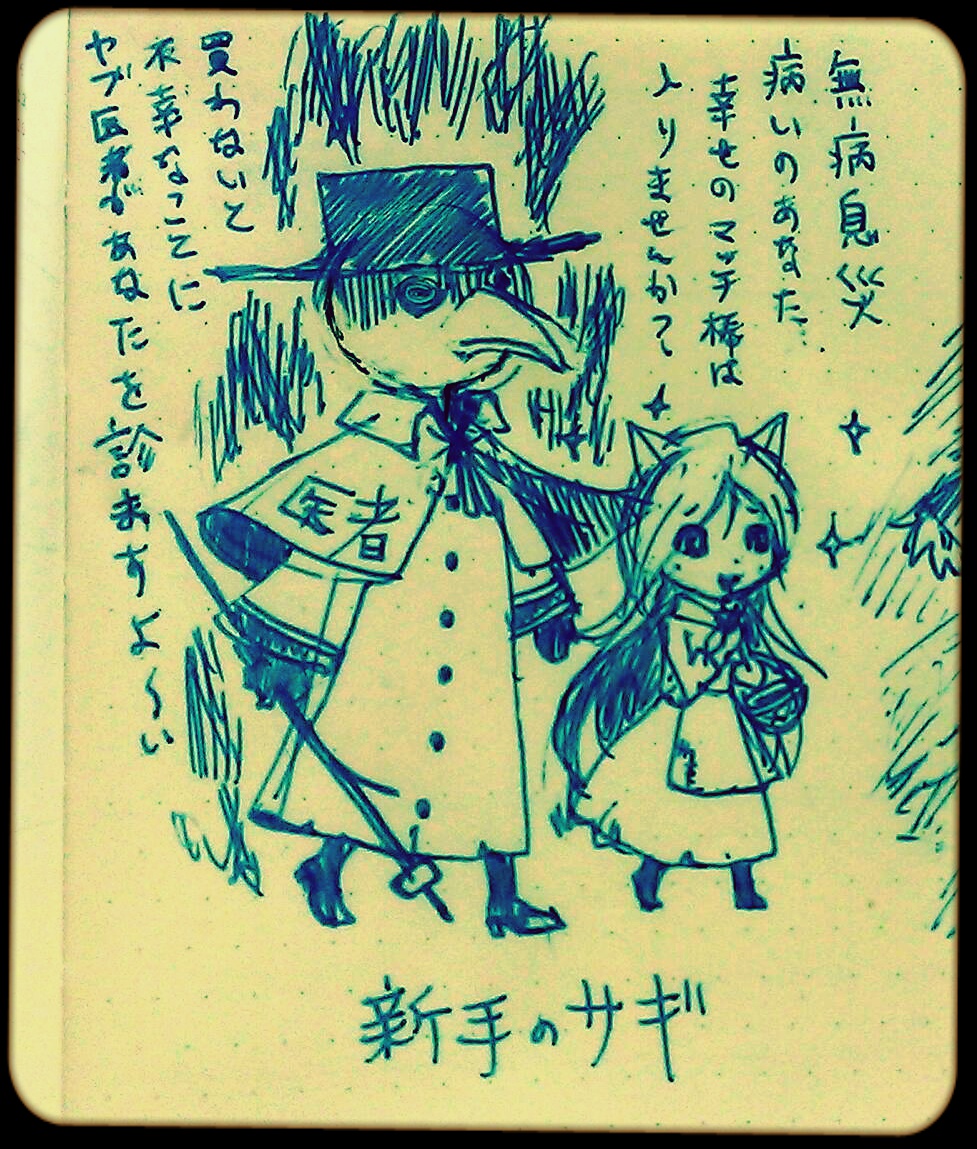 無病息災
病いのあなた、
幸せのマッチ棒は
入りませんか？
買わないと
不幸なことに
ヤブ医者があなたを診ますよ〜い
医者
新手のサギ